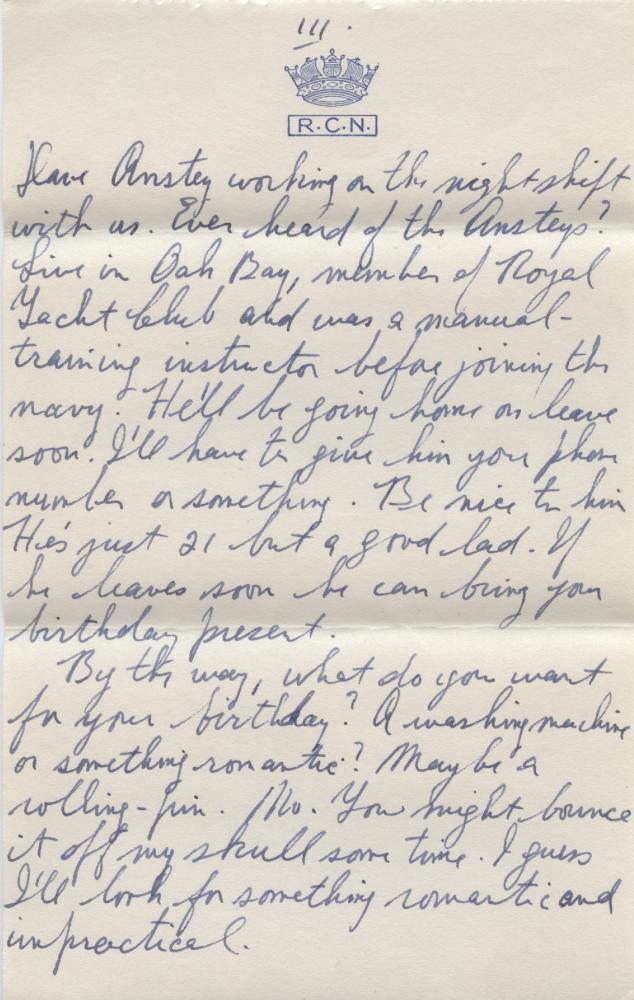 III.
R.C.N.
Have Anstey working on the night shift
with us. Ever heard of the Ansteys?
Live in Oak Bay, member of Royal
Yacht Club and was a manual-
training instructor before joining the
navy. He'll be going home on leave
soon. I'll have to give him your phone
number or something. Be nice to him
He's just 21 but a good lad. If
he leaves soon he can bring your
birthday present.
By the way, what do you want
for your birthday? A washing machine
or something romantic? Maybe a
rolling-pin. No. You might bounce
it off my skull some time. I guess
I'll look for something romantic and
unpractical.